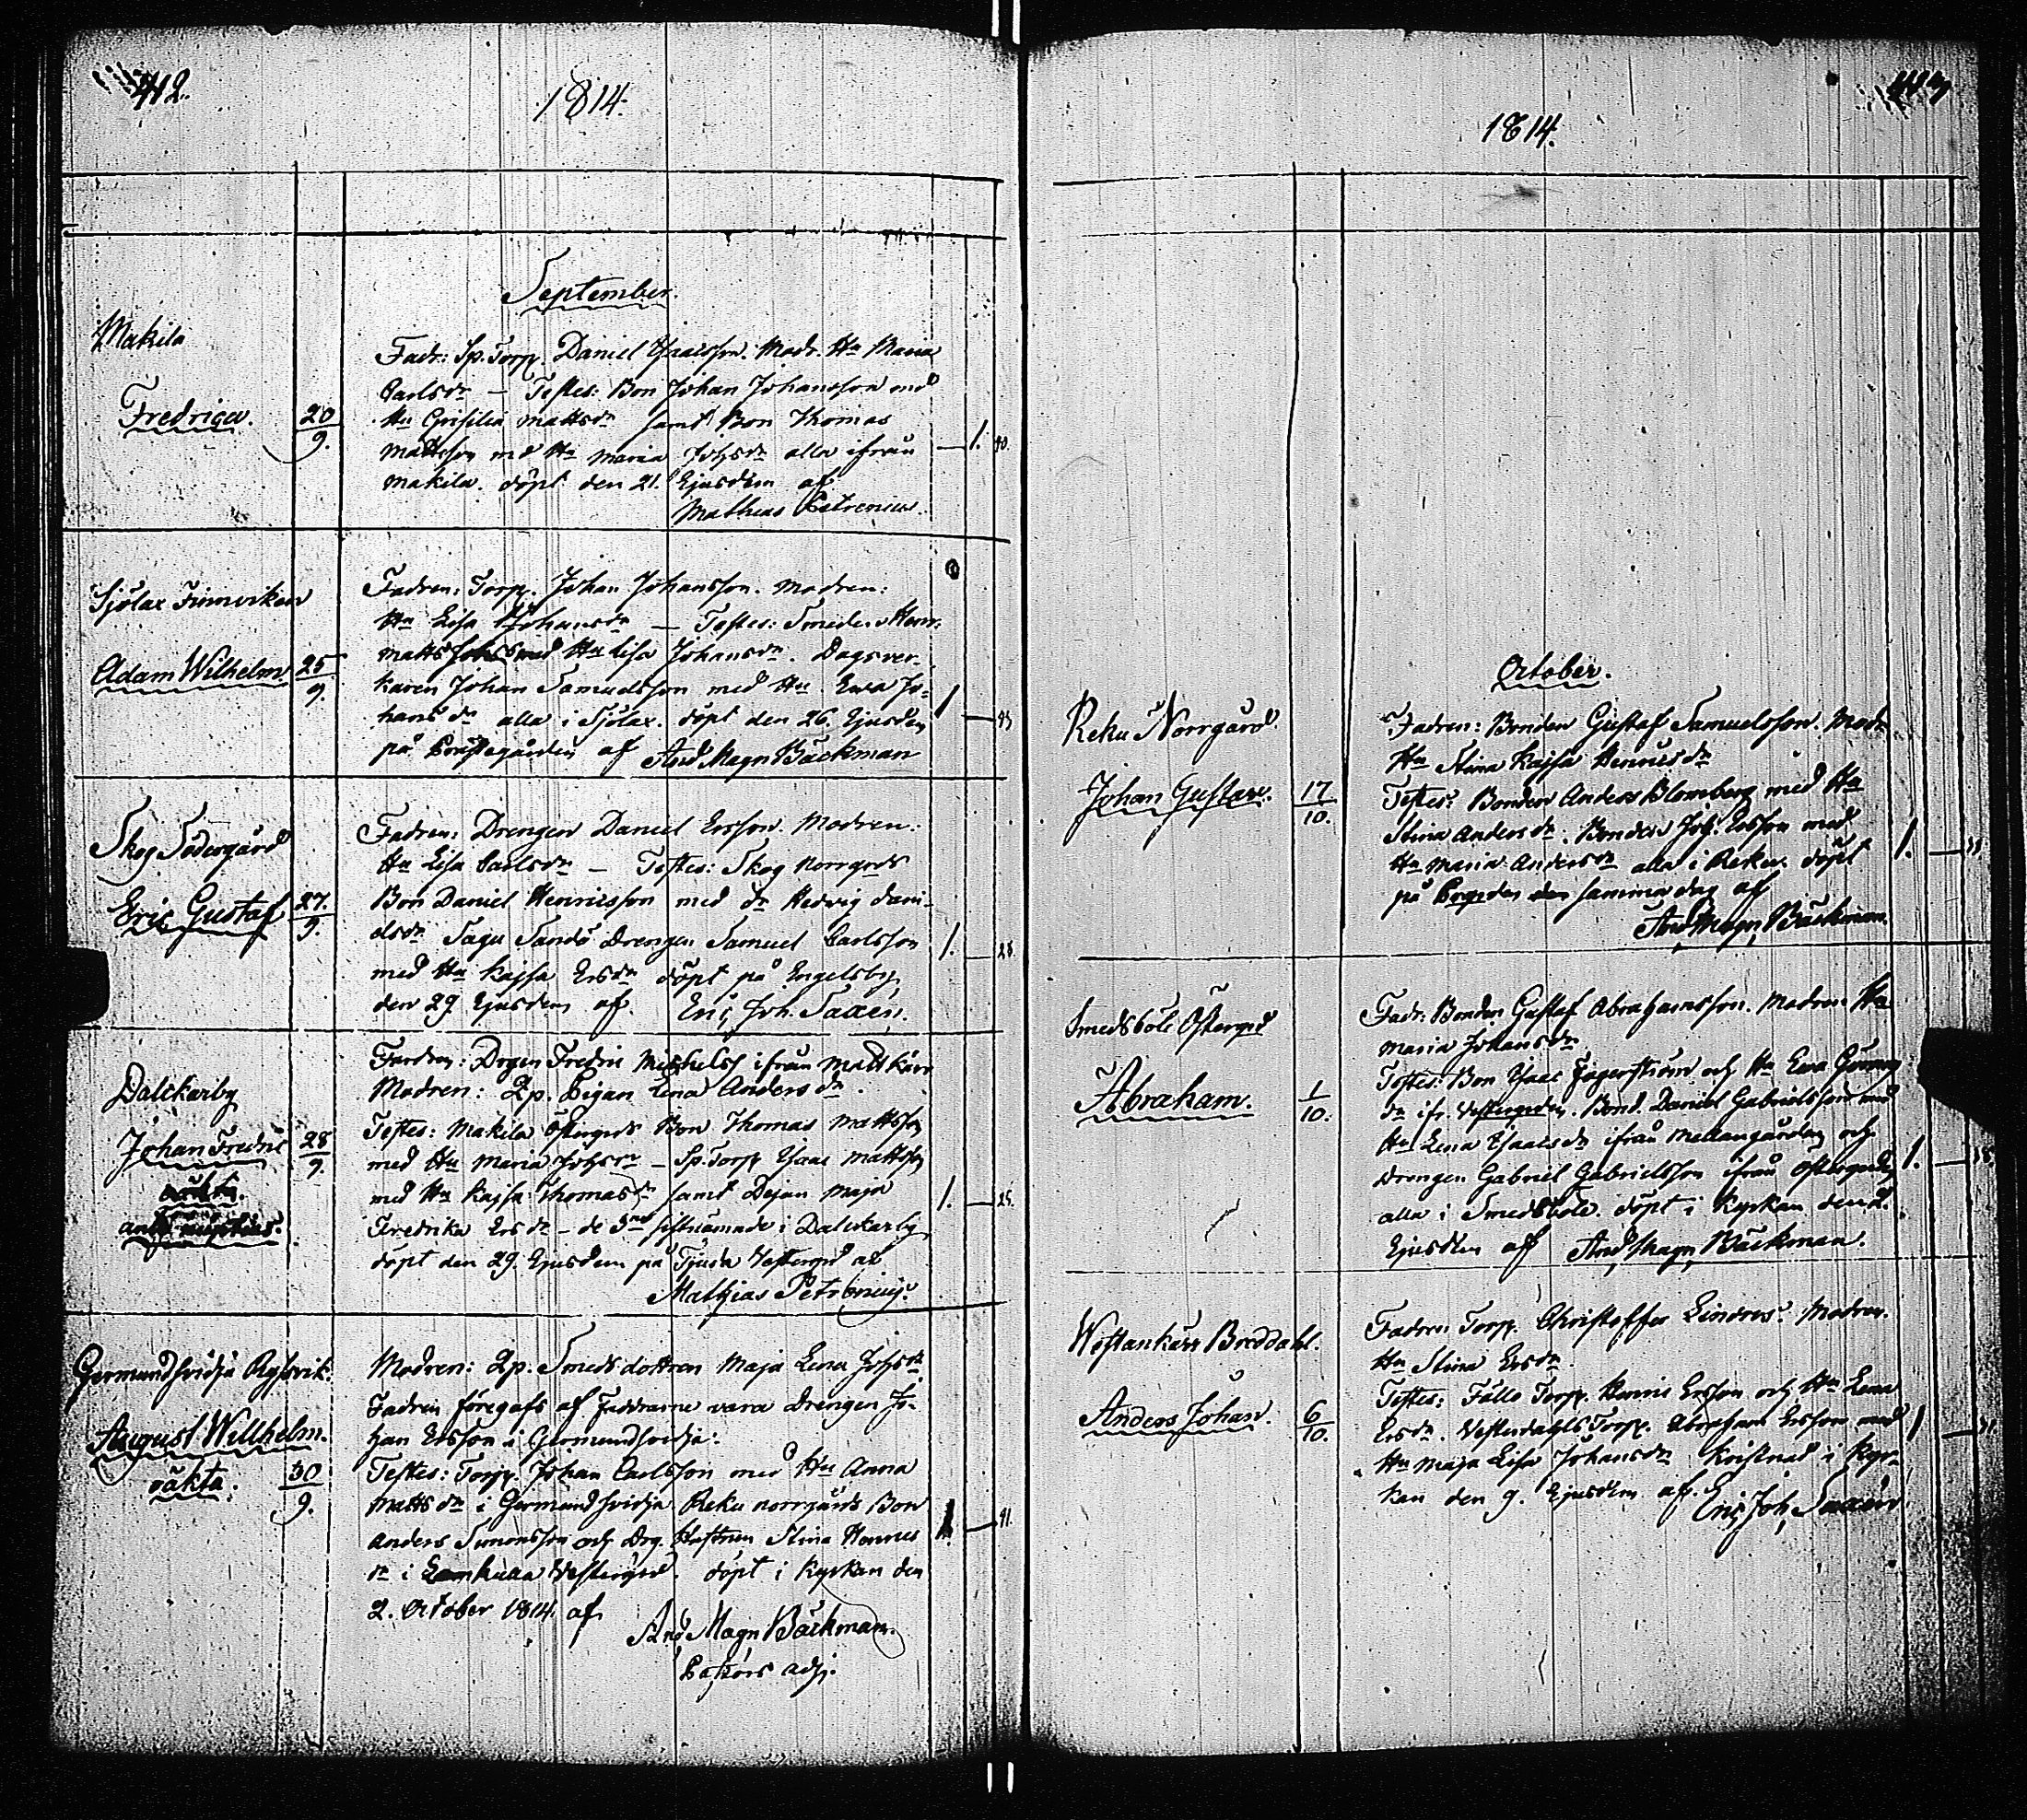 412.
1814.
September.
Makila
Fredrica.
20
9.
Fadr: Sp. Torp. Daniel Isacsson. Modr. Hu Maria
Carlsdr – Testes: Bon Johan Johansson med
Hu Grisilia Mattsdr samt Bon Thomas
Mattsson med Hu Maria Johsdr alla ifrån
Makila. döpt den 21. Ejusdem af
Mathias Petrenius.
1. 40.
Sjölax Finnviken
Adam Wilhelm.
25
9.
Fadren: Torp. Johan Johansson. Modren:
Hu Lisa Johansdr – Testes: Smeden Henr.
Matts med Hu Lisa Johansdr. Dagsver-
karen Johan Samuelsson med Hu Ewa Jo-
hansdr alla i Sjölax. döpt den 26. Ejusdem
på Prästegården af And Magn Bäckman
1
Skog Södergård
Eric Gustaf
27.
9.
Fadren: Drengen Daniel Ersson. Modren:
Hu Lisa Carlsdr – Testes: Skog Norrgårds
Bon Daniel Henricsson med dr Hedvig Dani-
elsdr Sagu Sandö Drengen Samuel Carlsson
med Hu Kajsa Ersdr döpt på Engelsby
den 29 Ejusdem af Eric Joh. Saxén.
1. 28.
Dalckarby
Johan Fredric
28
9.
Fadren: Drgen Fredric Michelss ifrån Mattkärr
Modren: Lp. Pigan Lena Andersdr.
Testes: Makila Östergrds Bon Thomas Mattsson
med Hu Maria Johsdr – Sp. Torp Isaac Mattsson
med Hu Kajsa Thomasdr samt Dejan Maja
Fredrika Ersdr – de 3ne sistnämnde i Dalckarby
döpt den 29. Ejusdem på Tjuda Vestergrd af
Mathias Petrenius.
1. 25.
Germundsvidja Rysvik.
August Willhelm.
oäkta.
30
9.
Modren: Lp. Smeds dottren Maja Lena Johsdr
Fadren föregafs af Faddrarne vara Drengen Jo-
han Ersson i Germundsvidja.
Testes: Torp. Johan Carlsson med Hu Anna
Mattsdr i Germundsvidja Reku Norrgårds Bon
Anders Simonsson och Drg. Hustrun Stina Henrics
dr i Vestergrd. döpt i Kyrkan den
2. October 1814 af
And Magn Bäckman.
Pastors adj.
1. 41.
1814.
October.
Reku Norrgård.
Johan Gustav.
17
10.
Fadren: Bonden Gustaf Samuelsson. Modr
Hu Stina Kajsa Henricsdr
Testes: Bonden Anders Blomberg med Hu
Stina Andersdr. Bonden Joh. Ersson med
Hu Maria Andersdr alla i Reku. döpt
på Prgrden samma dag af
And Magn Bäckman.
1.
Smedsböle Östergrd
Abraham.
1
10.
Fadr: Bonden Gustaf Abrahamsson. Modren Hu
Maria Johansdr
Testes: Bon Isaac Fagerström och Hu Ewa
dr ifr. Vestergrden. Bond. Daniel Gabrielsson med
Hu Lena Isaacsdr ifrån Mellangården och
Drengen Gabriel Gabrielsson ifrån Östergrden
alla i Smedsböle. döpt i Kyrkan den 2.
Ejusdem af And Magn Bäckman.
1.
Westankärr Breddahl.
Anders Johan.
6
10.
Fadren Torp. Christoffer Lindros. Modren.
Hu Stina Ersdr.
Testes: Fallo Torp. Henric Ersson och Hu Lena
Ersdr. Vesterdahls Torp. Abraham Ersson med
Hu Maja Lisa Johansdr Kristnad i Kyr-
kan den 9. Ejusdem af. Eric Joh, Saxén
1